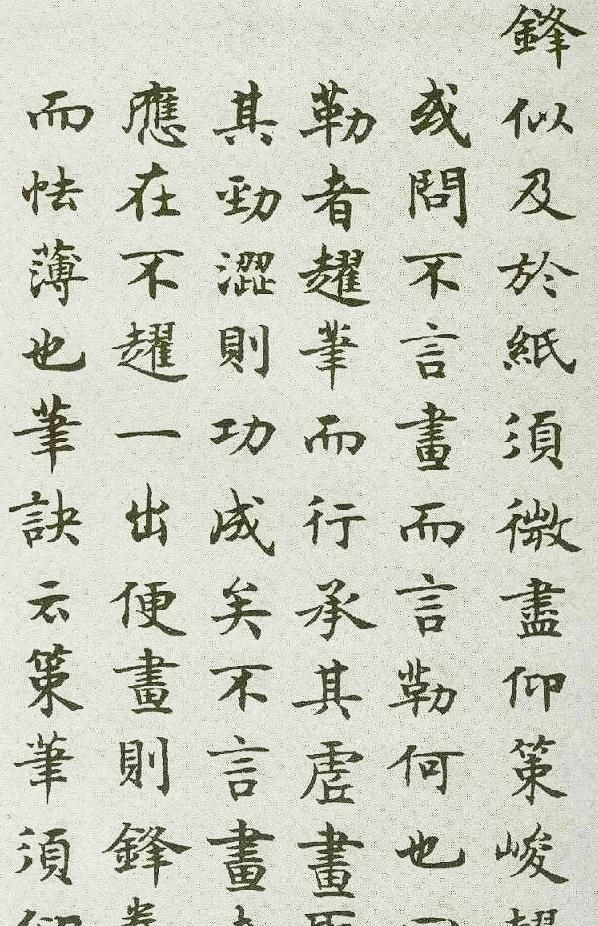 鋒似及於紙須微盡仰策峻
或問不言畫而言勒何也
勒者趯筆而行承其虛畫
其勁澀則功成矣不言畫
應在不趯一出便畫則鋒
而怯薄也筆訣云策筆須